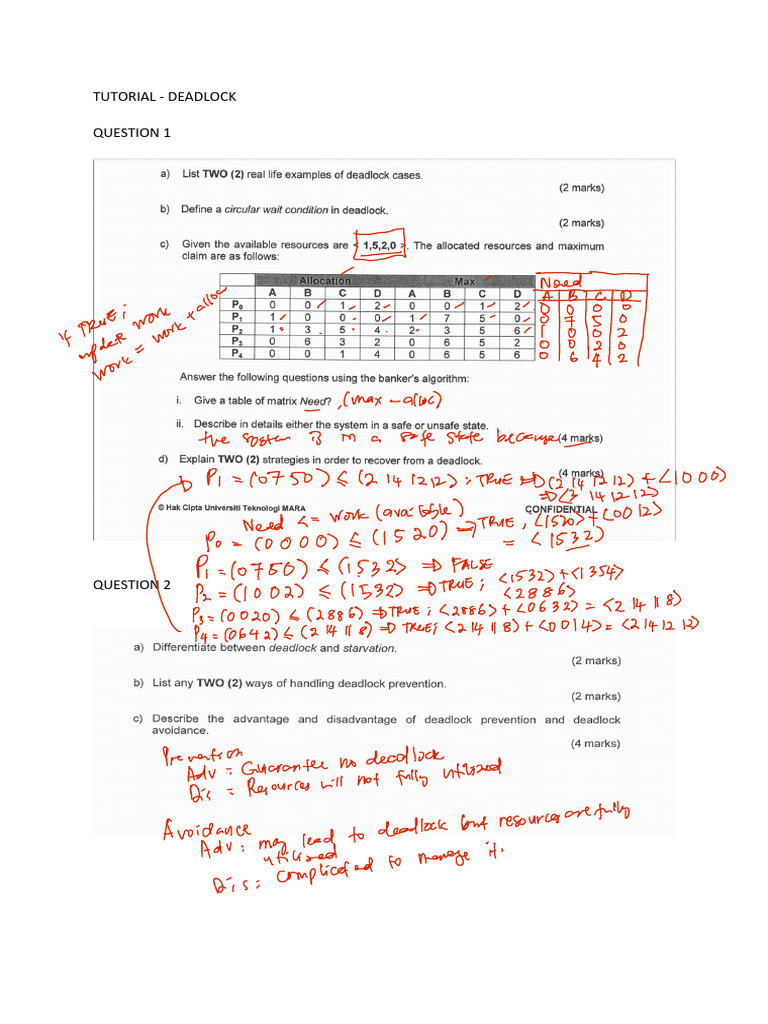 TUTORIAL - DEADLOCK
QUESTION 1
a) List TWO (2) real life examples of deadlock cases.
(2 marks)
b) Define a circular wait condition in deadlock.
(2 marks)
c) Given the available resources are < 1,5,2,0 >. The allocated resources and maximum
claim are as follows:
Allocation Max Need
A B C D A B C D A B C D
P0 0 0 1 2 0 0 1 2 0 0 0 0
P1 1 0 0 0 1 7 5 0 0 7 5 0
P2 1 3 5 4 2 3 5 6 1 0 0 2
P3 0 6 3 2 0 6 5 2 0 0 2 0
P4 0 0 1 4 0 6 5 6 0 6 4 2
if TRUE;
update work
work = work + alloc
Answer the following questions using the banker's algorithm:
i. Give a table of matrix Need? (max - alloc)
ii. Describe in details either the system in a safe or unsafe state.
the system is in a safe state because (4 marks)
d) Explain TWO (2) strategies in order to recover from a deadlock.
(4 marks)
P1 = (0 7 5 0) ≤ (2 14 12 12) ; TRUE ⇒ (2 14 12 12) + <1 0 0 0>
⇒ <3 14 12 12>
© Hak Cipta Universiti Teknologi MARA CONFIDENTIAL
Need <= work (available)
P0 = (0 0 0 0) ≤ (1 5 2 0) ⇒ TRUE, <1520> + <0012>
= <1532>
P1 = (0750) ≤ (1532) ⇒ FALSE
QUESTION 2
P2 = (1002) ≤ (1532) ⇒ TRUE ; <1532> + <1354>
<2886>
P3 = (0020) ≤ (2886) ⇒ TRUE ; <2886> + <0632> = <2 14 11 8>
P4 = (0642) ≤ (2 14 11 8) ⇒ TRUE; <2 14 11 8> + <0014> = <2 14 12 12>
a) Differentiate between deadlock and starvation.
(2 marks)
b) List any TWO (2) ways of handling deadlock prevention.
(2 marks)
c) Describe the advantage and disadvantage of deadlock prevention and deadlock
avoidance.
(4 marks)
Prevention
Adv = Guarantee no deadlock
Dis = Resources will not fully utilized
Avoidance
Adv : may lead to deadlock but resources are fully
utilized
Dis : complicated to manage it.